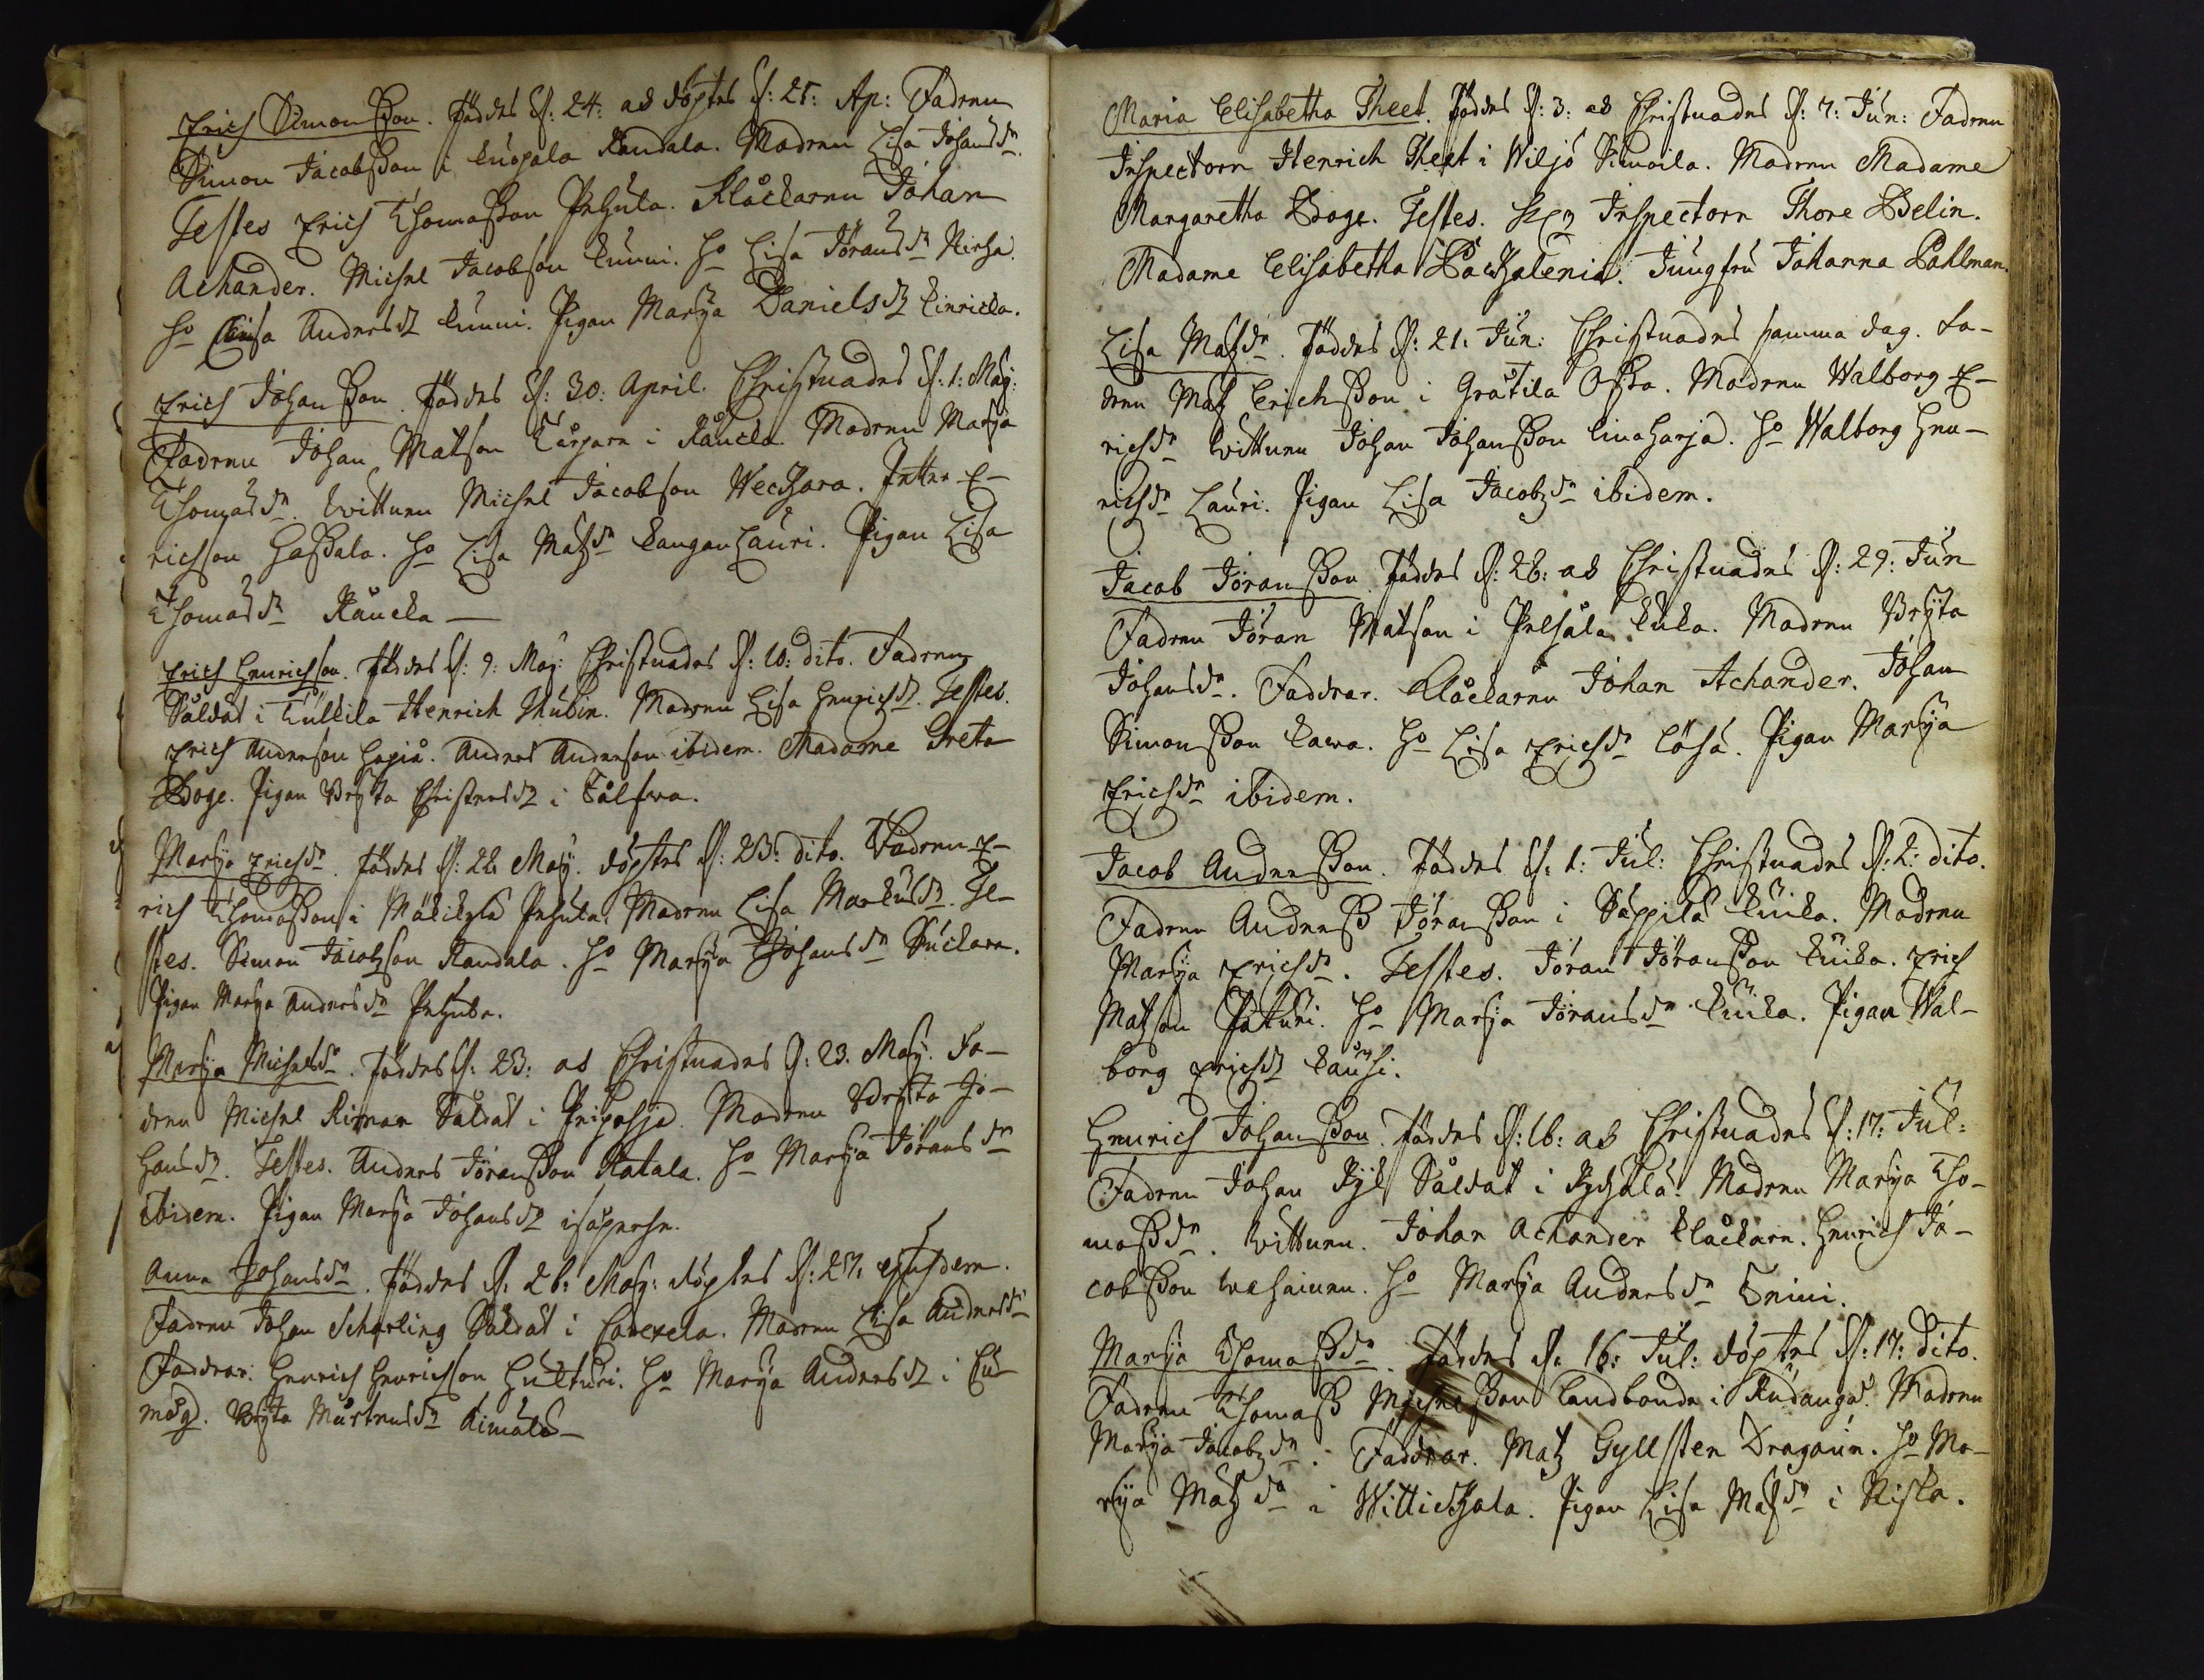 Erich Simonsson. föddes d: 24: ac döptes d: 25: Ap: Fadren
Simon Jacobsson i Kuopala Randala. Modren Lisa Johansdr.
Testes Erich Thomasson Pehula. Klåckaren Johan
Achander. Michel Jacobson Kunni. Ho Lisa Jöransdr
Ho Lisa Andersdr Kunni. Pigan Marija Danielsdr
Erich Johansson. föddes d: 30: April. Christnades d: 1: Maij:
Fadren Johan Matson i Rauela. Modren Marija
Thomasdr. Vittnen Michel Jacobson Weckara. Petter E-
richson Hassala. Ho Lisa Matzdr Kangan Lauri. Pigan Lisa
Thomasdr Rauela
Erich Henrichson. föddes d: 9: Maij: Christnades d: 10: dito. Fadren
Såldat i Tulkila Henrich Thubin. Modren Lisa Henrichsdr. Testes.
Erich Anderson. Anders Anderson ibidem. Madame Greta
Boge. Pigan Brijta Christersdr i
Marija Erichsdr. föddes d: 22 Maij. döptes d: 23: dito. Fadren E-
rich Thomasson i Mäkikylä Pehula. Modren Lisa Markusdr. Te-
stes. Simon Jacobson Randala. Ho Marija Johansdr
Pigan Marija Andersdr Pehula.
Marija Michelsdr. föddes d: 23: ac Christnades d: 23. Maij. Fa-
dren Michel Riman Såldat i Pripohja. Modren Brijta Jo-
hansdr. Testes. Anders Jöransson Ratala. Ho Marija Jöransdr
ibidem. Pigan Marija Johansdr
Anna Johansdr. föddes d: 26: Maij: döptes d: 27: ejusdem.
Fadren Johan Scharling Såldat i. Modren Lisa Andersdr
Faddrar. Henrich Henrichson Hulturi. Ho Marija Andersdr i
Brijta Mårtensdr Kimala
Maria Elisabetha Theet. föddes d: 3: ac Christnades d: 7: Jun: Fadren
Inspectorn Henrich Theet i Wiljo Simoila. Modren Madame
Margaretha Boge. Testes. Inspectorn Thore Belin.
Madame Elisabetha. Jungfru Johanna Pahlman.
Lisa Matzdr. föddes d: 21: Jun: Christnades samma dag. Fa-
dren Matz Erichsson i Gråtila. Modren Walborg E-
richsdr Vittnen Johan Johansson Linaharja. Ho Walborg Hen-
richsdr Lauri. Pigan Lisa Jacobzdr ibidem.
Jacob Jöransson. föddes d: 28: ac Christnades d: 29: Jun
Fadren Jöran Matson i Pelsåla. Modren Brijta
Johansdr. Faddrar. Klåckaren Johan Achander. Johan
Simonsson Kawa. Ho Lisa Erichsdr. Pigan Marija
Erichsdr ibidem.
Jacob Andersson. föddes d: 1: Jul: Christnades d: 2: dito.
Fadren Anderss Jöransson i Såppila Kuika. Modren
Marija Erichsdr. Testes. Jöran Jöransson Kuika. Erich
Matzon Paturi. Ho Marija Jöransdr Kuika. Pigan Wal-
borg Erichsdr Kauhi.
Henrich Johansson. föddes d: 16: ac Christnades d: 17: Jul:
Fadren Johan Ryk Såldat i. Modren Marija Tho-
massdr. Vittnen. Johan Achander Klåckare. Henrich Ja-
cobsson. Ho Marija Andersdr
Marija Thomassdr. föddes d: 16: Jul: döptes d: 17: dito.
Fadren Thomass Michelsson Landbonde i Rudanga. Modren
Marija Jacobzdr. Faddrar. Matz Gyllsten Dragoun. Ho Ma-
rija Matzdr i Wittickala. Pigan Lisa Matzdr i Riska.